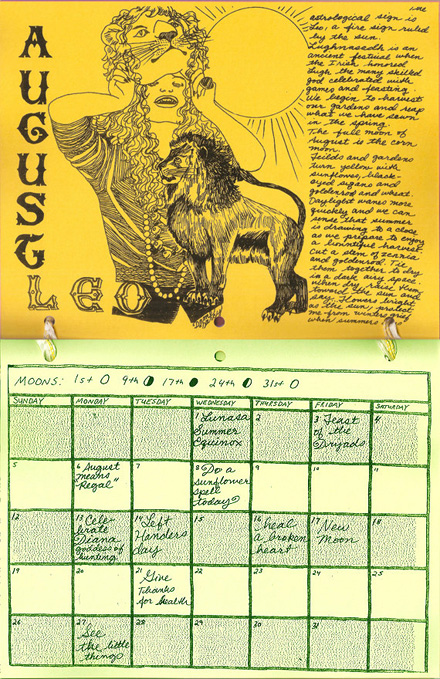 AUGUST
LEO
The
astrological sign is
Leo, a fire sign ruled
by the sun.
Lughnnasadh is an
ancient festival when
the Irish honored
Lugh the many skilled
god celebrated with
games and feasting.
We begin to harvest
our gardens and reap
what we have sown
in the spring.
The full moon of
August is the corn
moon.
Feilds and gardens
turn yellow with
sunflower, black-
eyed susans and
goldenrod and wheat.
Daylight wanes more
quickly and we can
sense that summer
is drawing to a close
as we prepare to enjoy
a bountiful harvest.
Cut a stem of
and goldenrod. Tie
them together to dry
in a dark airy space.
When dry raise them
towards the sun and
say: Flowers bright
as the sun, protect
me from winter
when summer's
MOONS: 1st 9th 17th 24th 31st
SUNDAY MONDAY TUESDAY WEDNESDAY THURSDAY FRIDAY SATURDAY
1 Lunasa Summer Equinox
2
3 Feast of the Dryads
4
5
6 August means "Regal"
7
8 Do a sunflower spell today
9
10
11
12
13 Celebrate Diana goddess of hunting
14 Left Handers day
15
16 heal a broken heart
17 New Moon
18
19
20
21 Give Thanks for health
22
23
24
25
26
27 See the little things
28
29
30
31